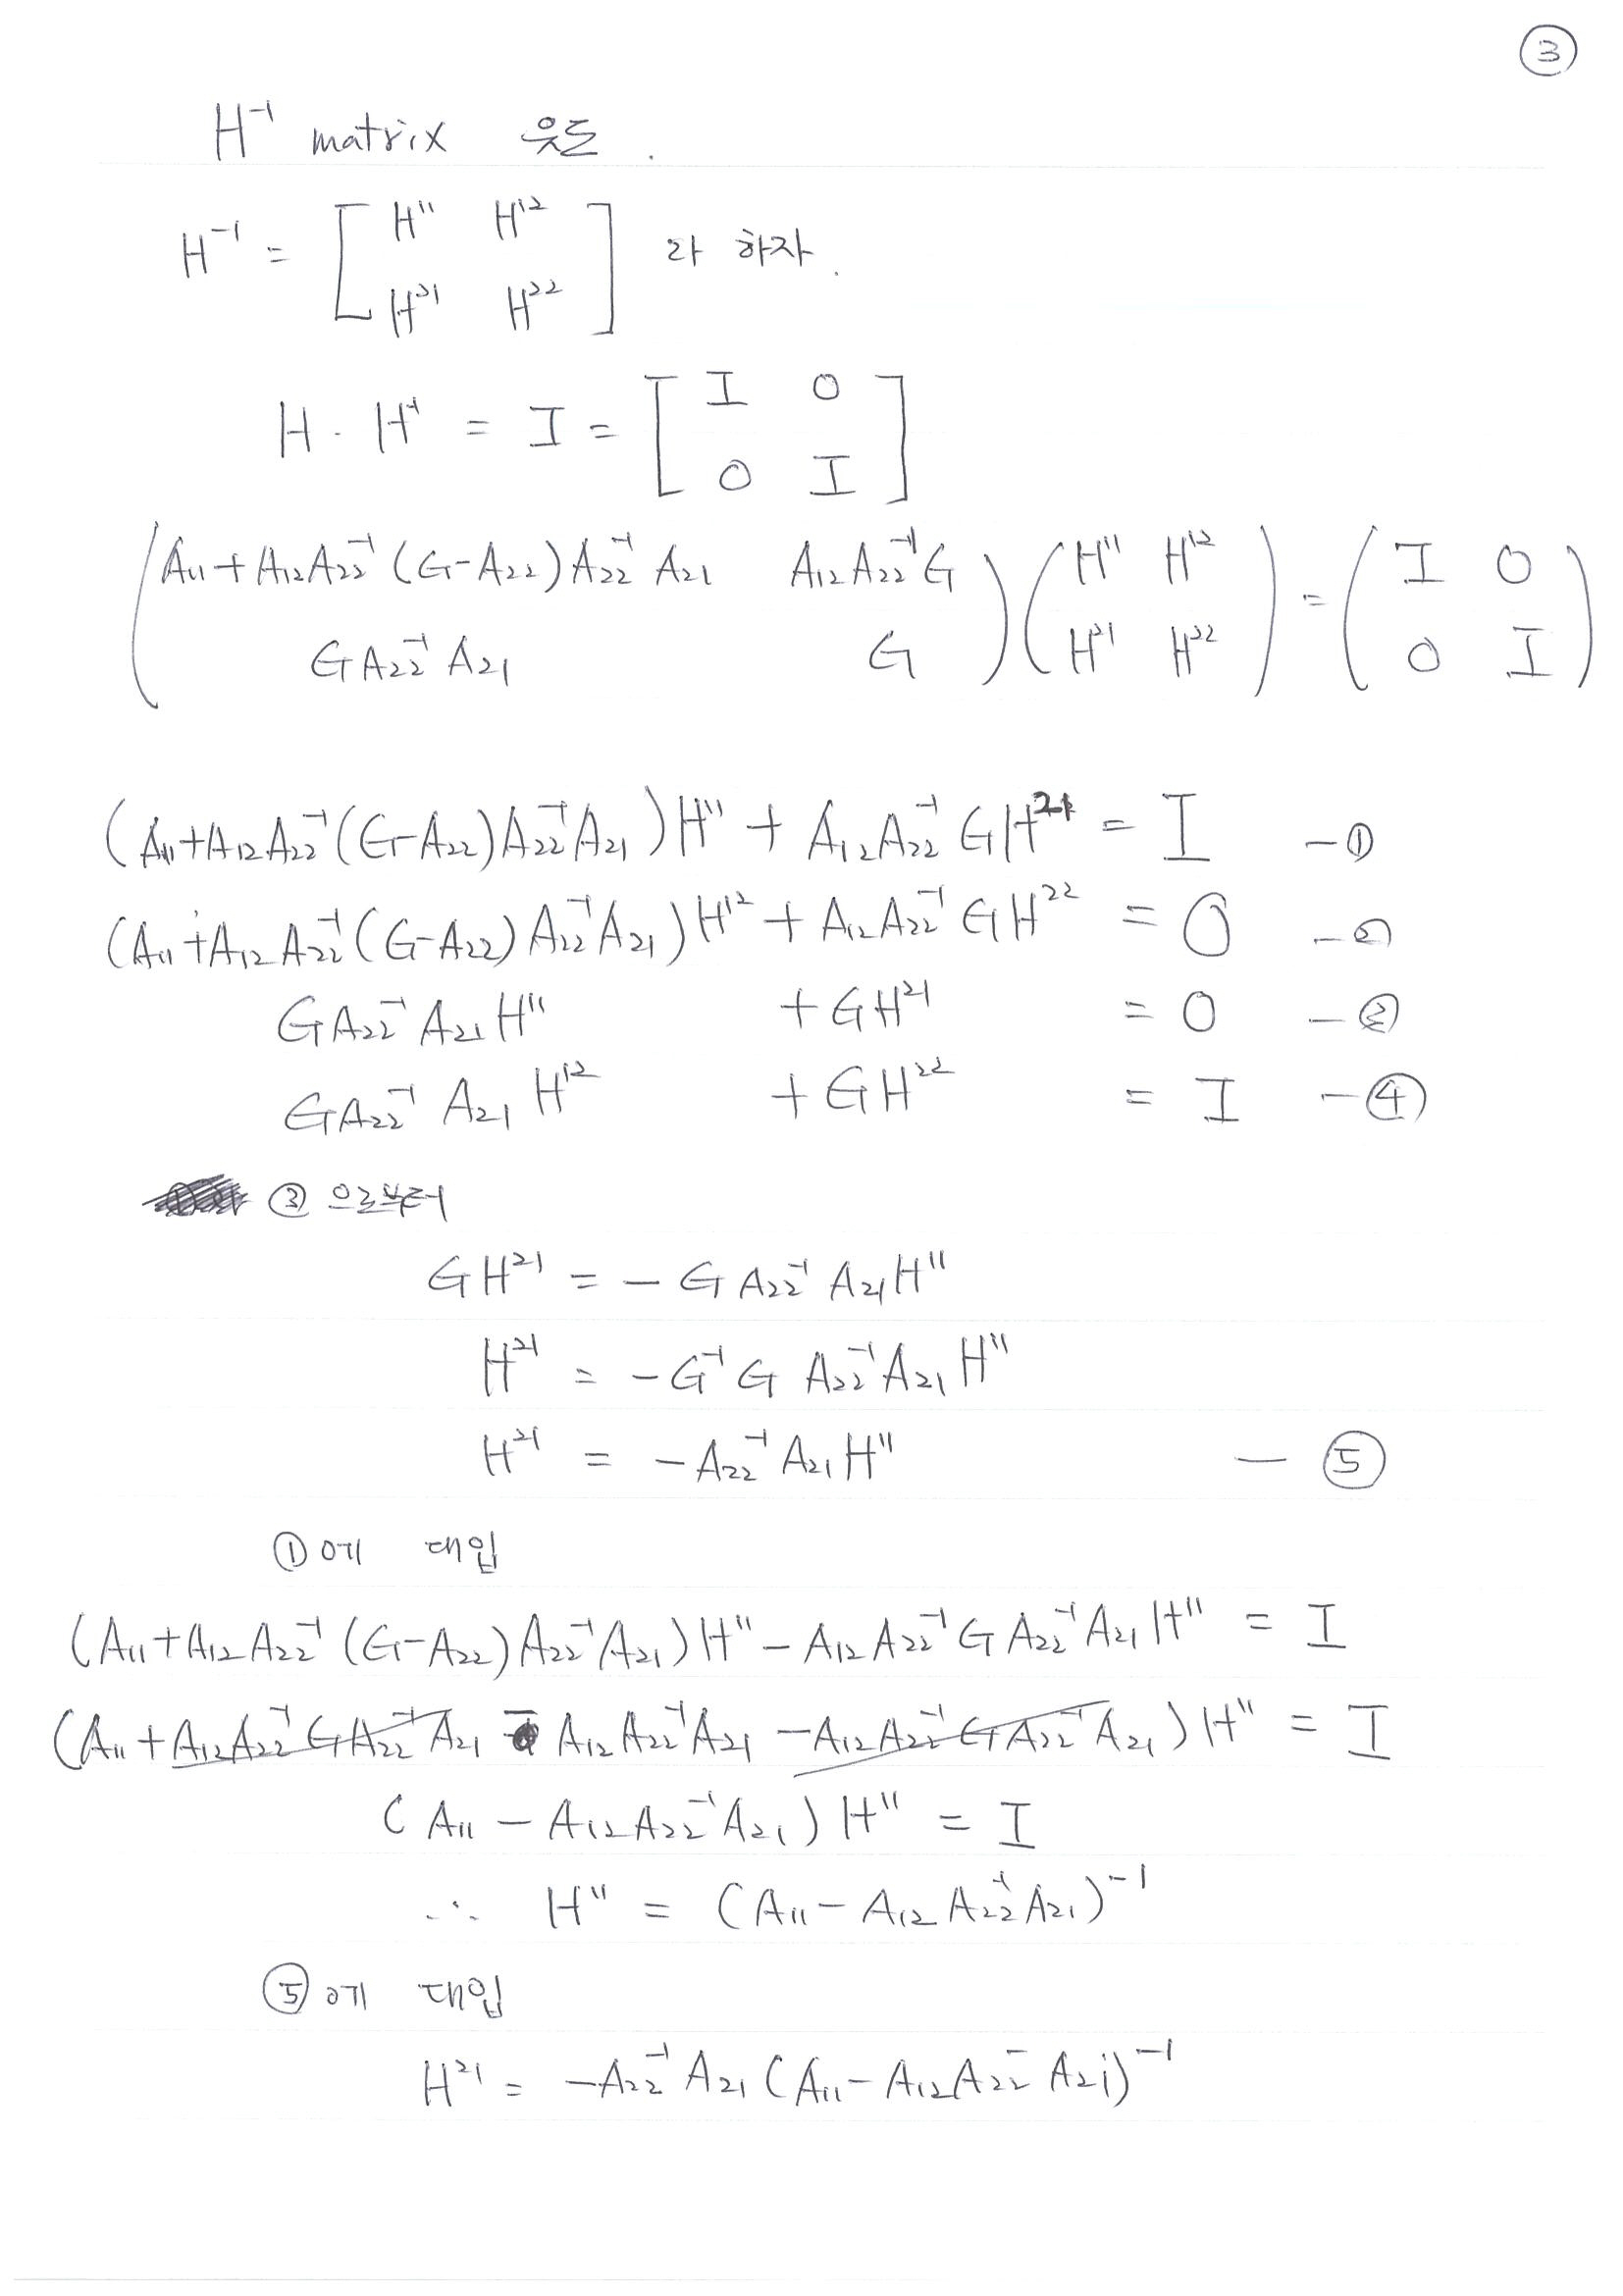 ③
H⁻¹ matrix 유도.
H⁻¹ = [ H¹¹ H¹² ; H²¹ H²² ] 라 하자.
H · H⁻¹ = I = [ I 0 ; 0 I ]
( A₁₁+A₁₂A₂₂⁻¹(G-A₂₂)A₂₂⁻¹A₂₁ A₁₂A₂₂⁻¹G ; GA₂₂⁻¹A₂₁ G ) ( H¹¹ H¹² ; H²¹ H²² ) = ( I 0 ; 0 I )
(A₁₁+A₁₂A₂₂⁻¹(G-A₂₂)A₂₂⁻¹A₂₁)H¹¹ + A₁₂A₂₂⁻¹GH²¹ = I -①
(A₁₁+A₁₂A₂₂⁻¹(G-A₂₂)A₂₂⁻¹A₂₁)H¹² + A₁₂A₂₂⁻¹GH²² = 0 -②
GA₂₂⁻¹A₂₁H¹¹ + GH²¹ = 0 -③
GA₂₂⁻¹A₂₁H¹² + GH²² = I -④
③ 으로부터
GH²¹ = - GA₂₂⁻¹A₂₁H¹¹
H²¹ = -G⁻¹G A₂₂⁻¹A₂₁H¹¹
H²¹ = -A₂₂⁻¹A₂₁H¹¹ - ⑤
①에 대입
(A₁₁+A₁₂A₂₂⁻¹(G-A₂₂)A₂₂⁻¹A₂₁)H¹¹ - A₁₂A₂₂⁻¹GA₂₂⁻¹A₂₁H¹¹ = I
(A₁₁+A₁₂A₂₂⁻¹GA₂₂⁻¹A₂₁ - A₁₂A₂₂⁻¹A₂₁ - A₁₂A₂₂⁻¹GA₂₂⁻¹A₂₁)H¹¹ = I
(A₁₁ - A₁₂A₂₂⁻¹A₂₁)H¹¹ = I
∴ H¹¹ = (A₁₁ - A₁₂A₂₂⁻¹A₂₁)⁻¹
⑤에 대입
H²¹ = -A₂₂⁻¹A₂₁(A₁₁-A₁₂A₂₂⁻A₂₁)⁻¹